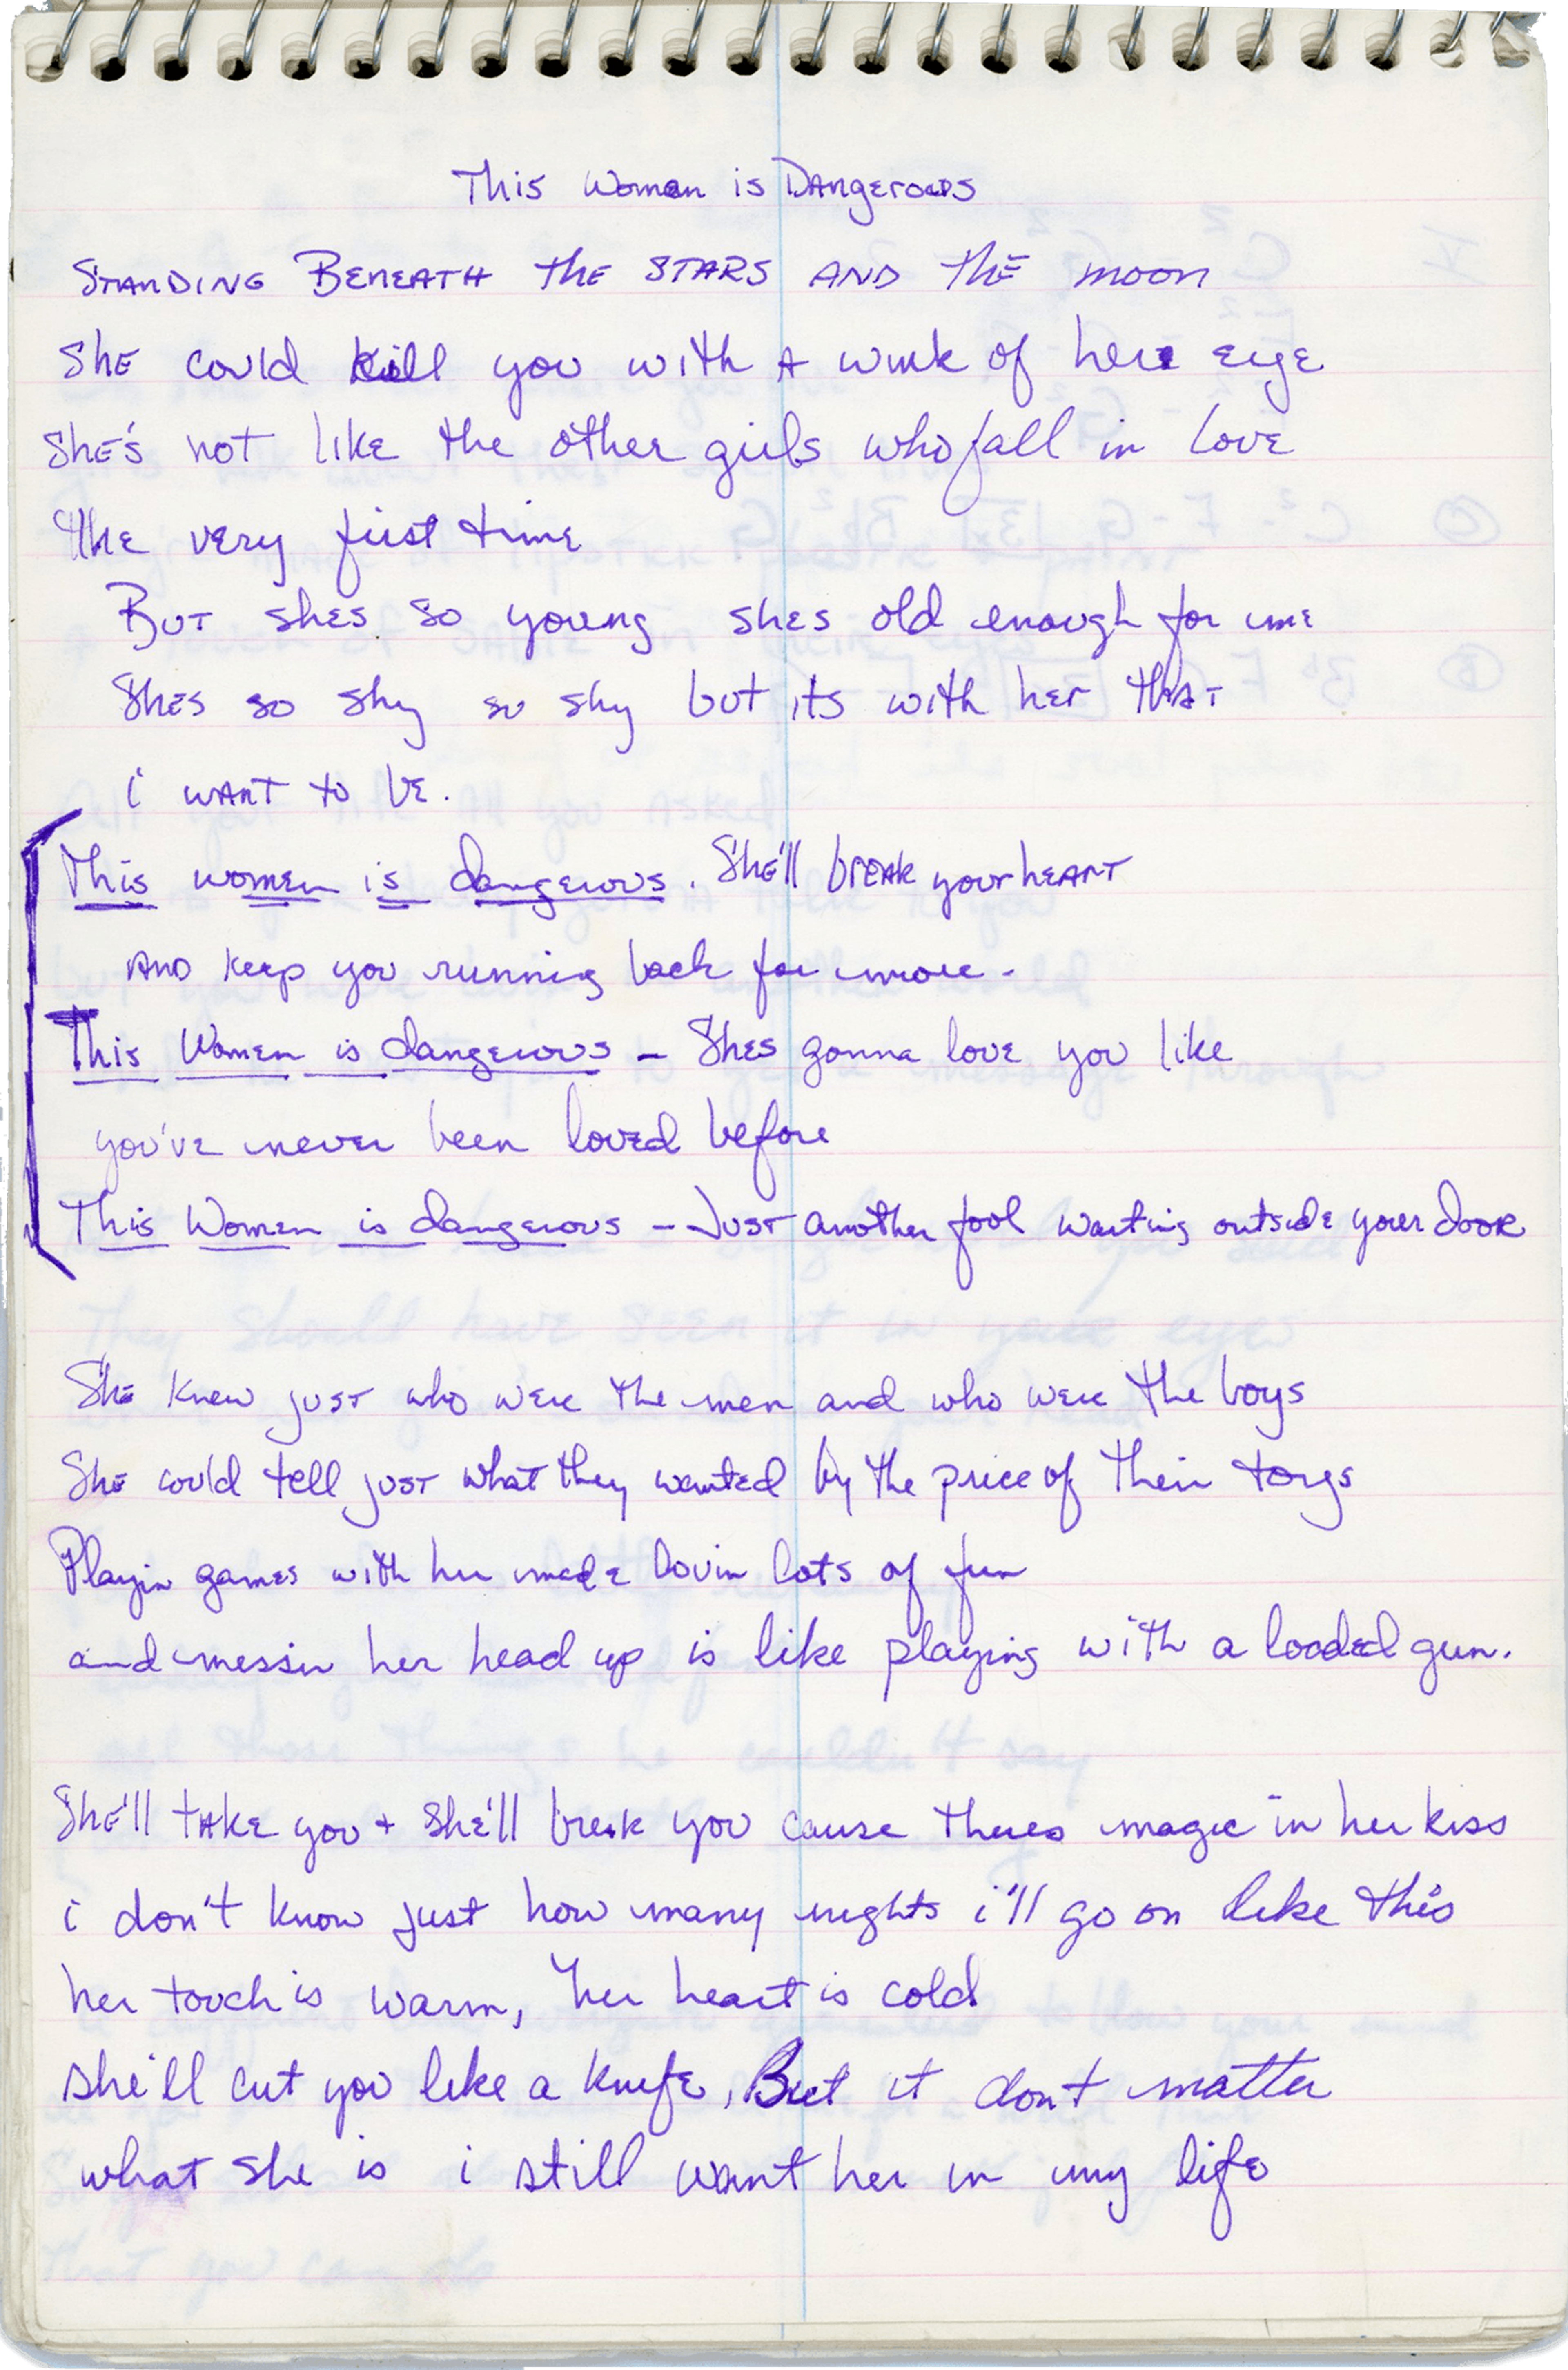 This Woman is Dangerous
Standing Beneath the stars and the moon
She could kill you with a wink of her eye
She's not like the other girls who fall in love
the very first time
But shes so young shes old enough for me
Shes so shy so shy but its with her that
i want to be.
This women is dangerous. She'll break your heart
And keep you running back for more -
This Women is dangerous - Shes gonna love you like
you've never been loved before
This Women is dangerous - Just another fool waiting outside your door
She knew just who were the men and who were the boys
She could tell just what they wanted by the price of their toys
Playin games with her made lovin lots of fun
and messin her head up is like playing with a loaded gun.
She'll take you + she'll break you cause theres magic in her kiss
i don't know just how many nights i'll go on like this
her touch is warm, her heart is cold
she'll cut you like a knife, But it don't matter
what she is i still want her in my life